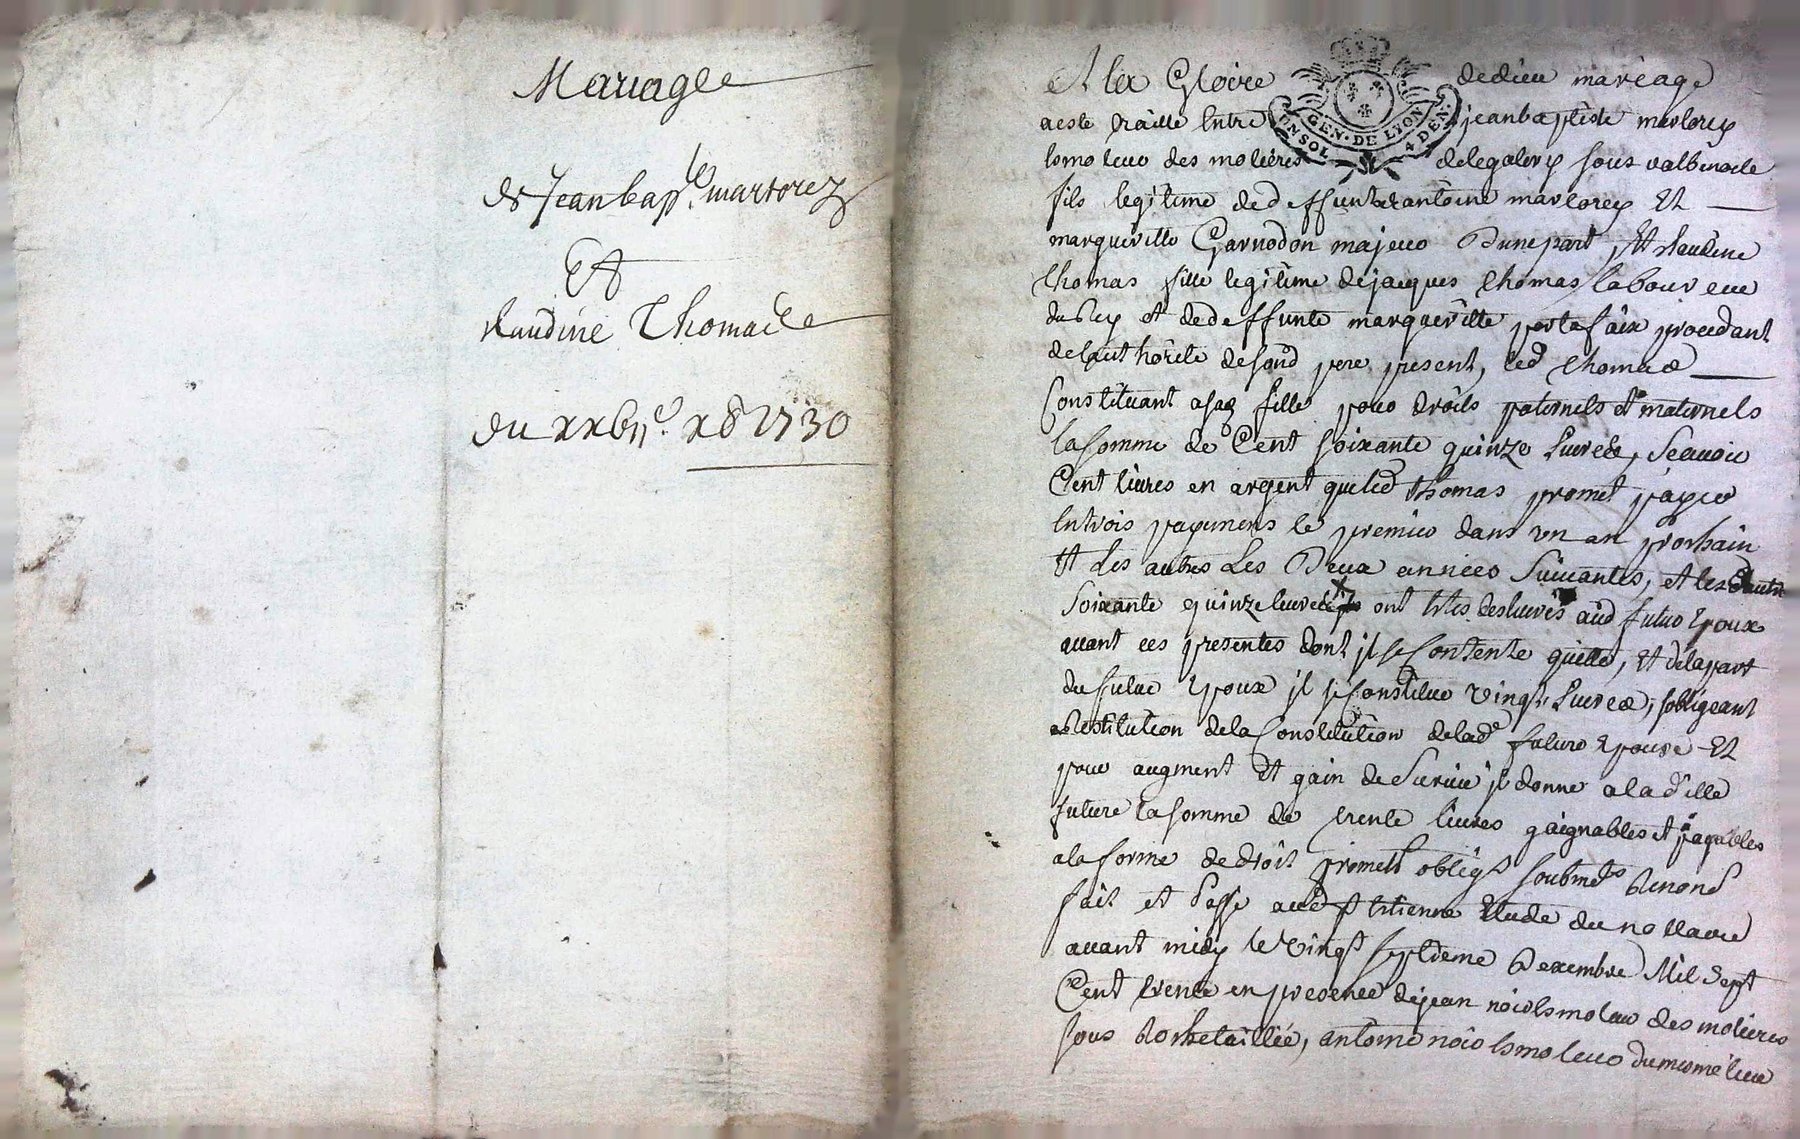 Mariage
de Jean bap.te martorey
Et
claudine Thomas
du xxbii.e xb 1730
A la Gloire de dieu mariage
a este traitte Entre jean baptiste martorey
esmoleur des molieres de legalery sous valbenoite
fils legitime de deffunt antoine martorey Et
margueritte Garnodon majeur Dune part, Et claudine
thomas fille legitime de jacques thomas laboureur
du Rey et de deffunte margueritte portefaix procedant
de lauthôrite de sond pere present, led thomas
Constituant a sad fille pour droits paternels et maternels
la somme de Cent soixante quinze Livres, Scavoir
Cent livres en argent que led thomas promet payer
En trois payemens le premier dans un an prochain
Et les autres Les Deux années Suivantes, et les
soixante quinze livres ont Estes deslivrés aud futur Epoux
avant ces presentes dont jl se Contente quitte, Et de la part
du futur Epoux jl se Constitue vingt Livres, sobligeant
a Restitution de la Constitution de lad.e future Epouse Et
pour augment Et gain de Survie jl donne a lad.e ille
future la somme de trente livres gaignables et payables
a la forme de droit promett oblig.t soubmet.s Renond
fait et Passe aud St Etienne Etude du nottaire
avant midy le vingt septieme Dexembre Mil Sept
Cent trente en presence de jean noir esmoleur des molieres
sous Rochetaillée, antoine noir esmoleur du mesme lieu
GEN. DE LYON
UN SOL 4 DEN.